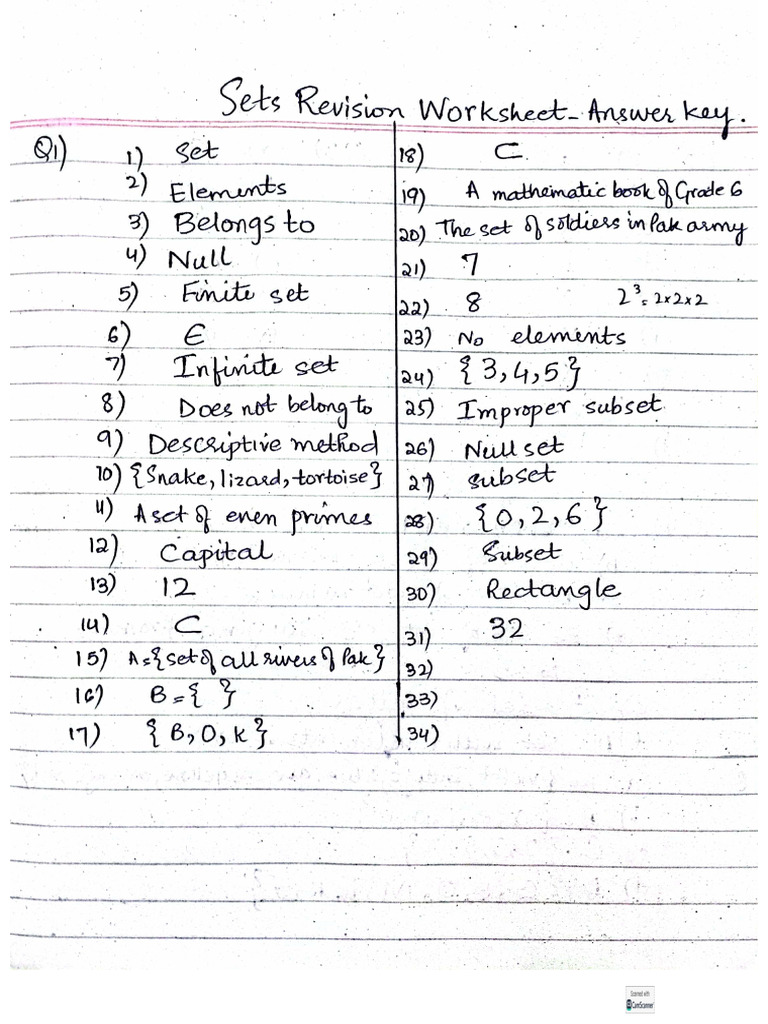 Sets Revision Worksheet - Answer key.
Q1)
1) Set
2) Elements
3) Belongs to
4) Null
5) Finite set
6) ∈
7) Infinite set
8) Does not belong to
9) Descriptive method
10) {Snake, lizard, tortoise}
11) A set of even primes
12) Capital
13) 12
14) ⊂
15) A={set of all rivers of Pak}
16) B={ }
17) {B, O, K}
18) ⊂
19) A mathematic book of Grade 6
20) The set of soldiers in Pak army
21) 7
22) 8 2³=2×2×2
23) No elements
24) {3,4,5}
25) Improper subset
26) Null set
27) subset
28) {0,2,6}
29) Subset
30) Rectangle
31) 32
32)
33)
34)
Scanned with
CamScanner